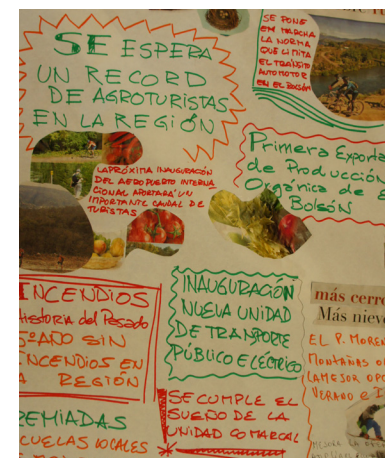 SE ESPERA
UN RECORD
DE AGROTURISTAS
EN LA REGIÓN
SE PONE
EN MARCHA
LA NORMA
QUE LIMITA
EL TRÁNSITO
AUTOMOTOR
EN EL BOLSÓN
LA PRÓXIMA INAUGURACIÓN
DEL AEROPUERTO INTERNA
CIONAL APORTARÁ UN
IMPORTANTE CAUDAL DE
TURISTAS
Primera Exporta
de Producción
Orgánica de E
Bolsón
INCENDIOS
Historia del Pasado
AÑO SIN
INCENDIOS EN
A REGIÓN
INAUGURACIÓN
NUEVA UNIDAD
DE TRANPORTE
PÚBLICO ELÉCTRICO
más cerro
Más nieve
EL P. MOREN
MONTAÑAS
LA MEJOR OPC
VERANO e I
SE CUMPLE EL
SUEÑO DE LA
UNIDAD COMARCAL
REMIADAS
CUELAS LOCALES